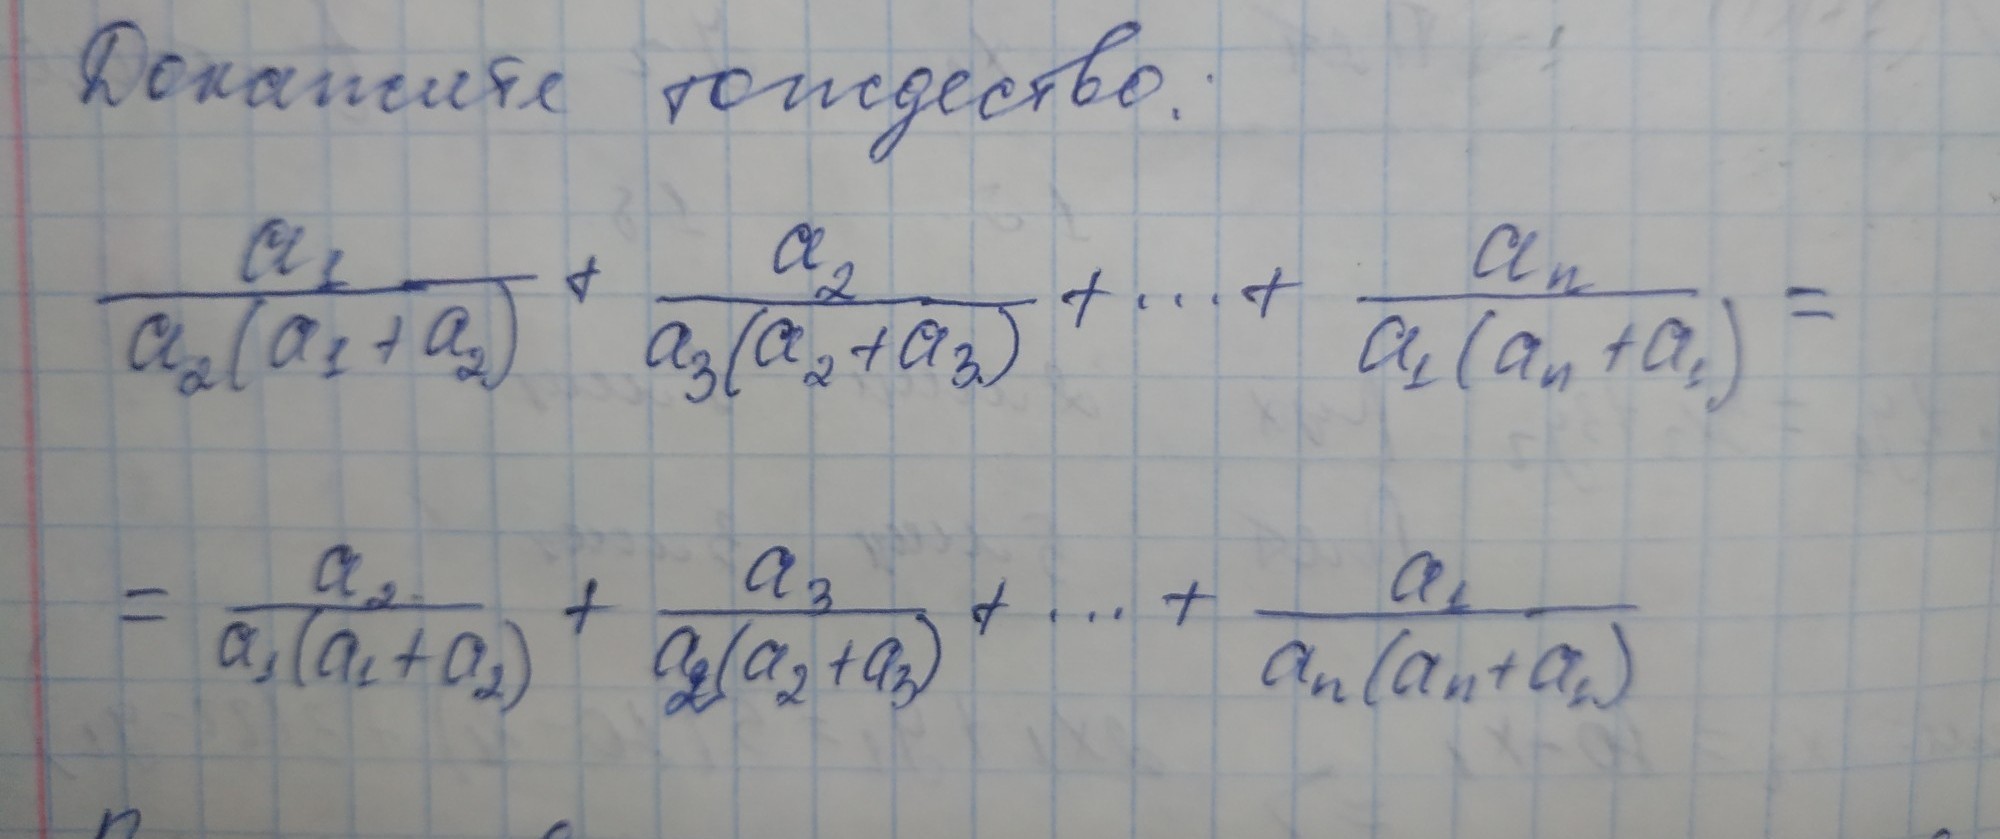 Докажите тождество:
\frac{a_1}{a_2(a_1+a_2)} + \frac{a_2}{a_3(a_2+a_3)} + ... + \frac{a_n}{a_1(a_n+a_1)} =
= \frac{a_2}{a_1(a_1+a_2)} + \frac{a_3}{a_2(a_2+a_3)} + ... + \frac{a_1}{a_n(a_n+a_1)}